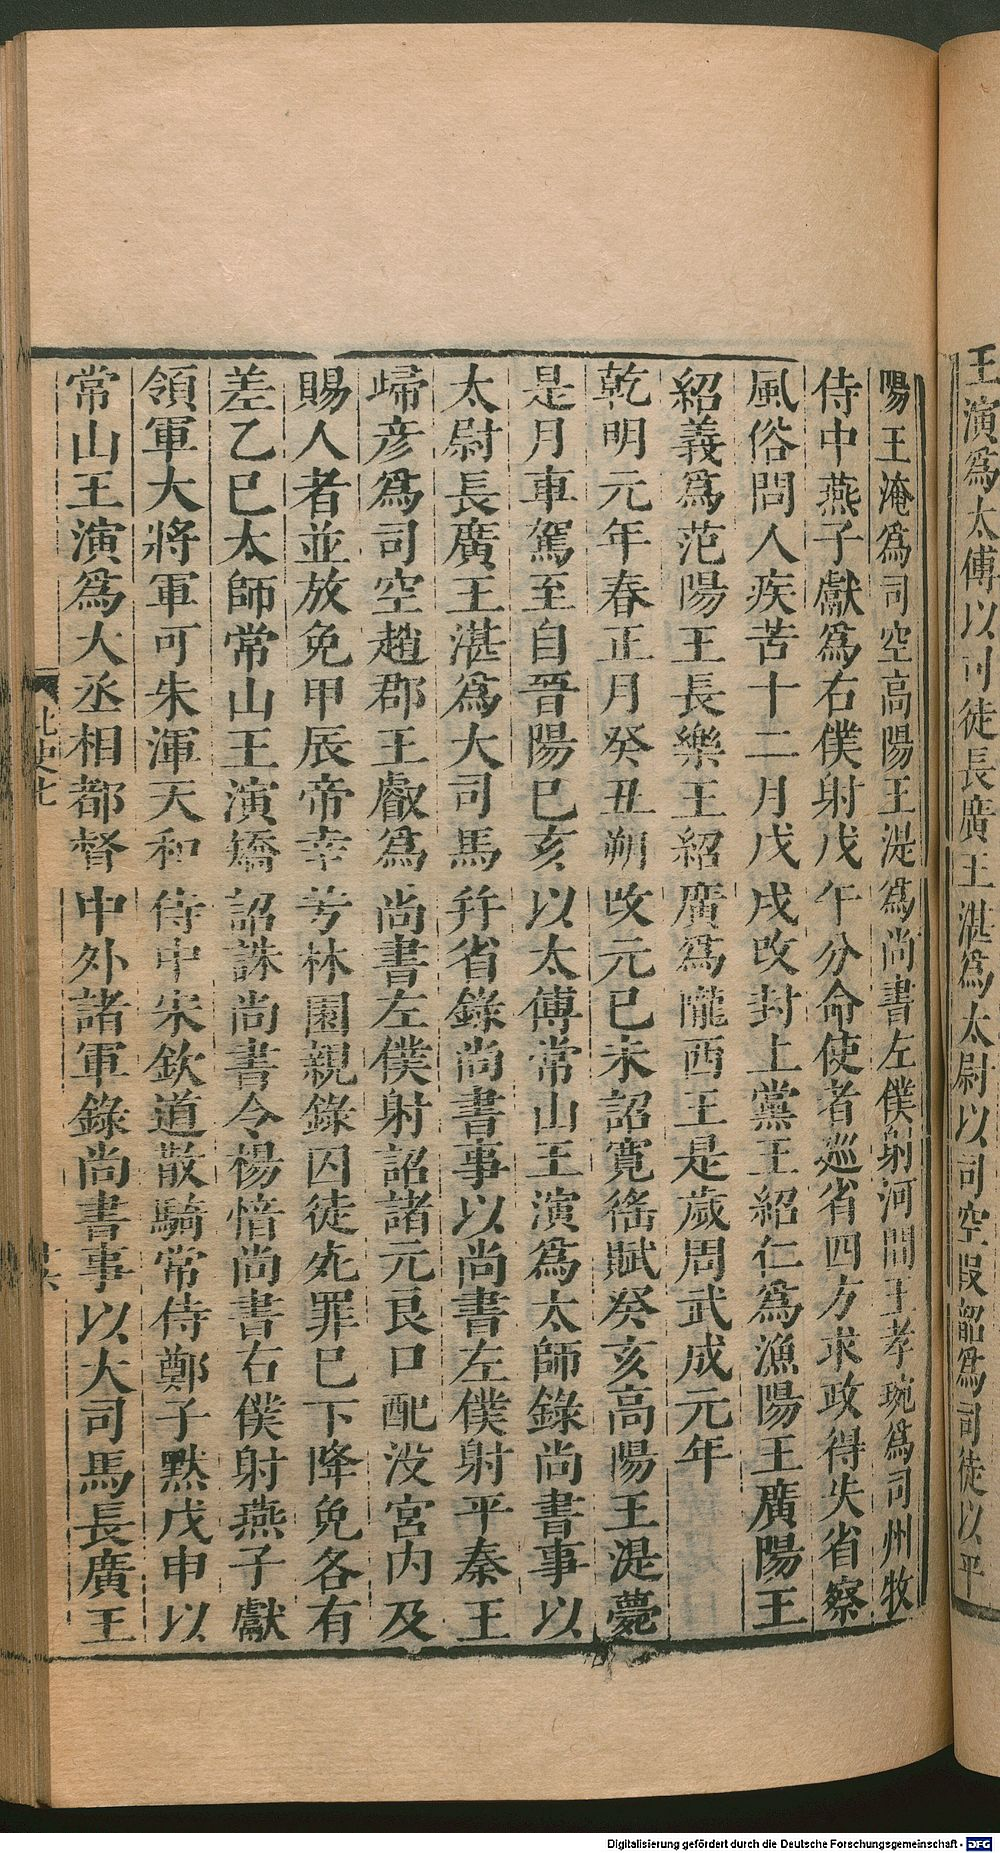 王演爲太傅以司徒長廣王湛爲太尉以司空段韶爲司徒以平
陽王淹爲司空高陽王湜爲尚書左僕射河間王孝琬爲司州牧
侍中燕子獻爲右僕射戊午分命使者巡省四方求政得失省察
風俗問人疾苦十二月戊戌改封上黨王紹仁爲漁陽王廣陽王
紹義爲范陽王長樂王紹廣爲隴西王是歲周武成元年
乾明元年春正月癸丑朔改元己未詔寬徭賦癸亥高陽王湜薨
是月車駕至自晉陽巳亥以太傅常山王演爲太師錄尚書事以
太尉長廣王湛爲大司馬并省錄尚書事以尚書左僕射平秦王
歸彥爲司空趙郡王叡爲尚書左僕射詔諸元良口配没宮内及
賜人者並放免甲辰帝幸芳林園親錄囚徒死罪巳下降免各有
差乙巳太師常山王演矯詔誅尚書令楊愔尚書右僕射燕子獻
領軍大將軍可朱渾天和侍中宋欽道散騎常侍鄭子默戊申以
常山王演爲大丞相都督中外諸軍錄尚書事以大司馬長廣王
北史七
Digitalisierung gefördert durch die Deutsche Forschungsgemeinschaft - DFG